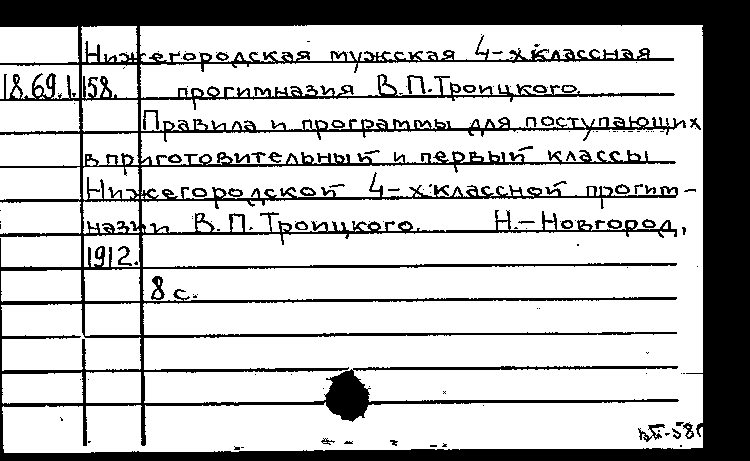 Нижегородская мужская 4-х классная
18.69.1.158. прогимназия В.П.Троицкого.
Правила и программы для поступающих
в приготовительный и первый классы
Нижегородской 4-х классной прогим-
назии В.П.Троицкого. Н.-Новгород,
1912.
8 с.